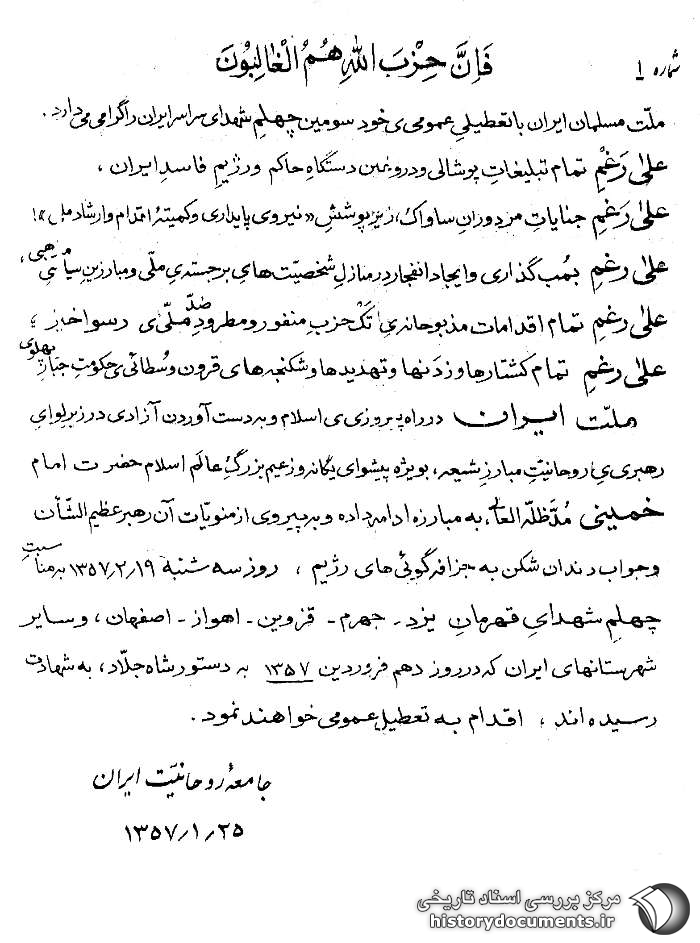 شماره ۱
فَاِنَّ حِزْبَ اللهِ هُمُ الْغالِبُونَ
ملّت مسلمان ایران با تعطیلیِ عمومی‌ی خود سومین چهلمِ شهدای سراسر ایران را گرامی می‌دارد.
علیٰ رَغْمِ تمام تبلیغاتِ پوشالی و دروغین دستگاهِ حاکم و رژیمِ فاسدِ ایران ،
علیٰ رَغمِ جنایاتِ مزدورانِ ساواک، زیرِ پوششِ «نیروی پایداری و کمیتهٔ اقدام و ارشاد ملی»!
علیٰ رغمِ بُمب گذاری و ایجاد انفجار در منازلِ شخصیّت‌های برجسته‌ی ملّی و مبارزینِ سیاسی مذهبی ،
علیٰ رغمِ تمام اقدامات مذبوحانه‌ی تَک حزبِ منفور و مطرودِ ضدّ ملّی‌ی رسواخیز ؛
علیٰ رغمِ تمام کشتارها و زدَنها و تهدیدها و شکنجه‌های قرون وُسطائی‌ی حکومتِ جبّارِ پهلوی
ملّت ایران در راه پیروزی‌ی اسلام و به دست آوردن آزادی در زیرِ لوایِ
رهبری‌ی روحانیّتِ مبارزِ شیعه، بویژه پیشوای یگانه و زعیم بزرگِ عالَم اسلام حضرت امام
خمینی مُدَّ ظلّه العالی، به مبارزه ادامه داده و به پیروی از منویّات آن رهبر عظیم الشّأن
و جواب دندان شکن به جزافه گوئی‌های رژیم ، روز سه شنبه ۱۳۵۷٫۲٫۱۹ به مناسبتِ
چهلمِ شهدایِ قهرمانِ یزد - جهرم - قزوین - اهواز - اصفهان ، و سایر
شهرستانهای ایران که در روز دهم فروردین ۱۳۵۷ به دستور شاه جلّاد، به شهادت
رسیده‌اند ، اقدام به تعطیلِ عمومی خواهند نمود.
جامعهٔ روحانیّت ایران
۱۳۵۷٫۱٫۲۵
مرکز بررسی اسناد تاریخی
historydocuments.ir